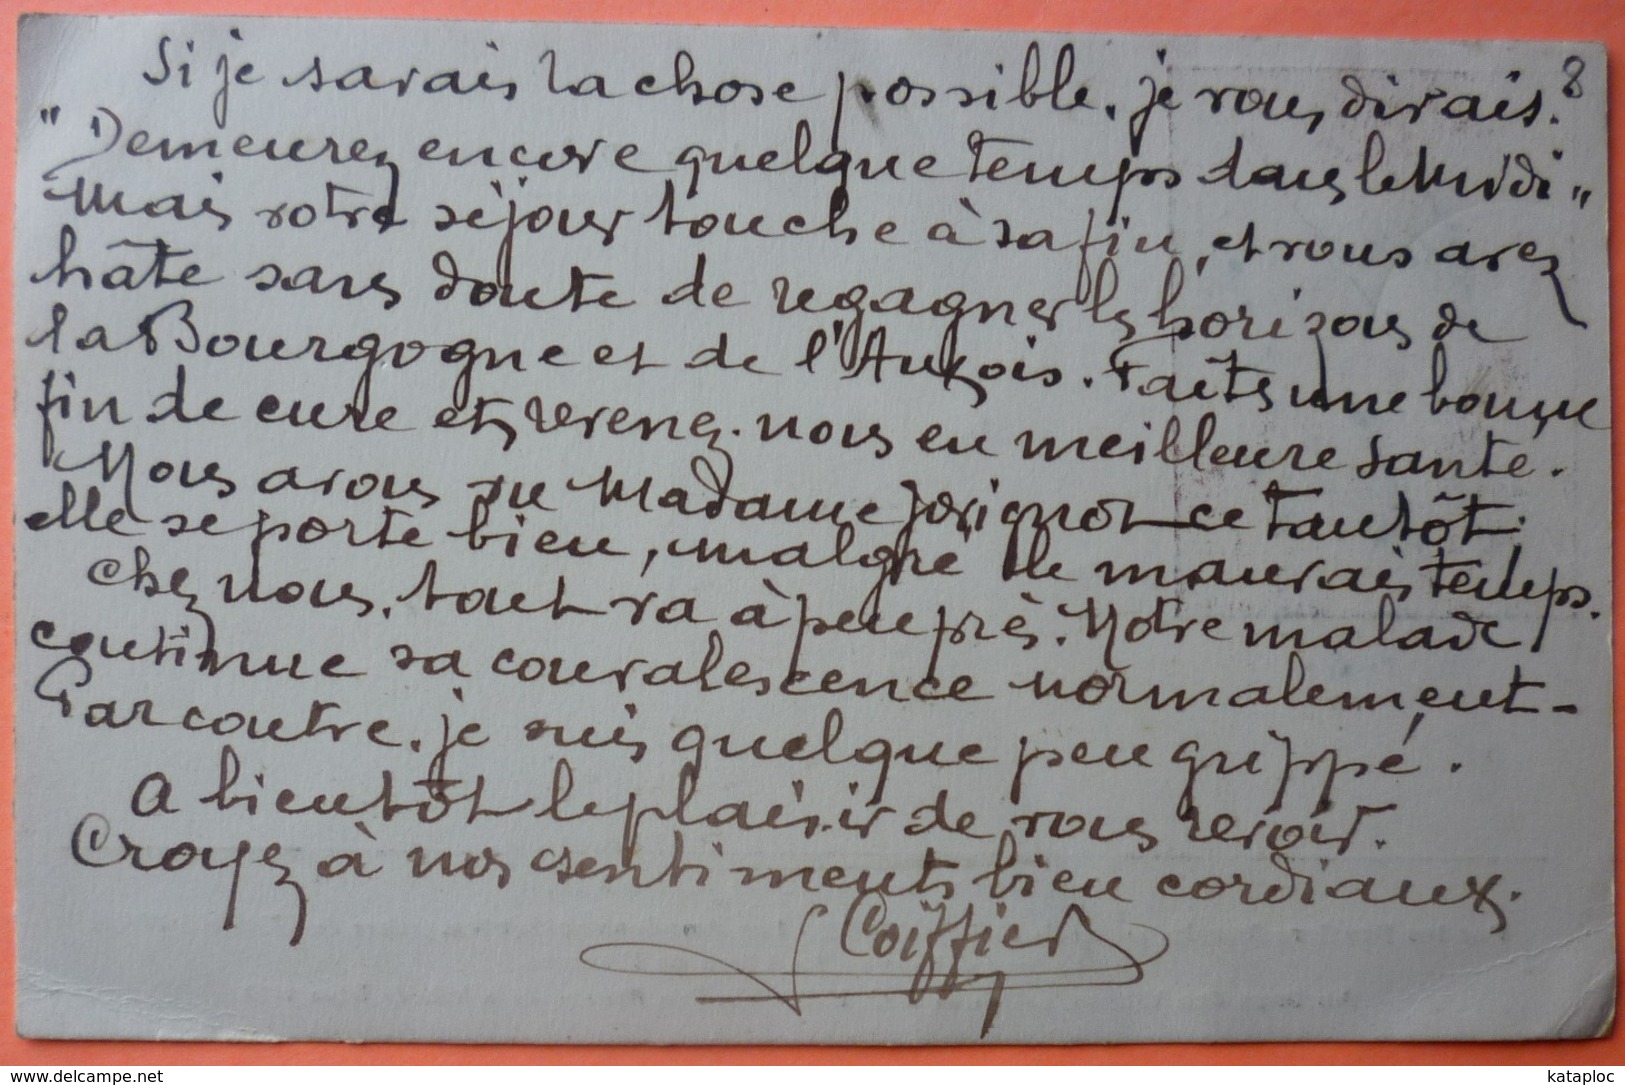 Si je savais la chose possible, je vous dirais : 8
"Demeurez encore quelque temps dans le Midi"
Mais votre séjour touche à sa fin, et vous avez
hâte sans doute de regagner les horizons de
la Bourgogne et de l'Auxois. Faites une bonne
fin de cure et revenez-nous en meilleure santé.
Nous avons vu Madame Jorignot ce tantôt.
elle se porte bien, malgré le mauvais temps.
Chez nous, tout va à peu près. Notre malade
continue sa convalescence normalement -
Par contre, je suis quelque peu grippé.
A bientôt le plaisir de vous revoir.
Croyez à nos sentiments bien cordiaux.
Coiffier
www.delcampe.net
kataploc